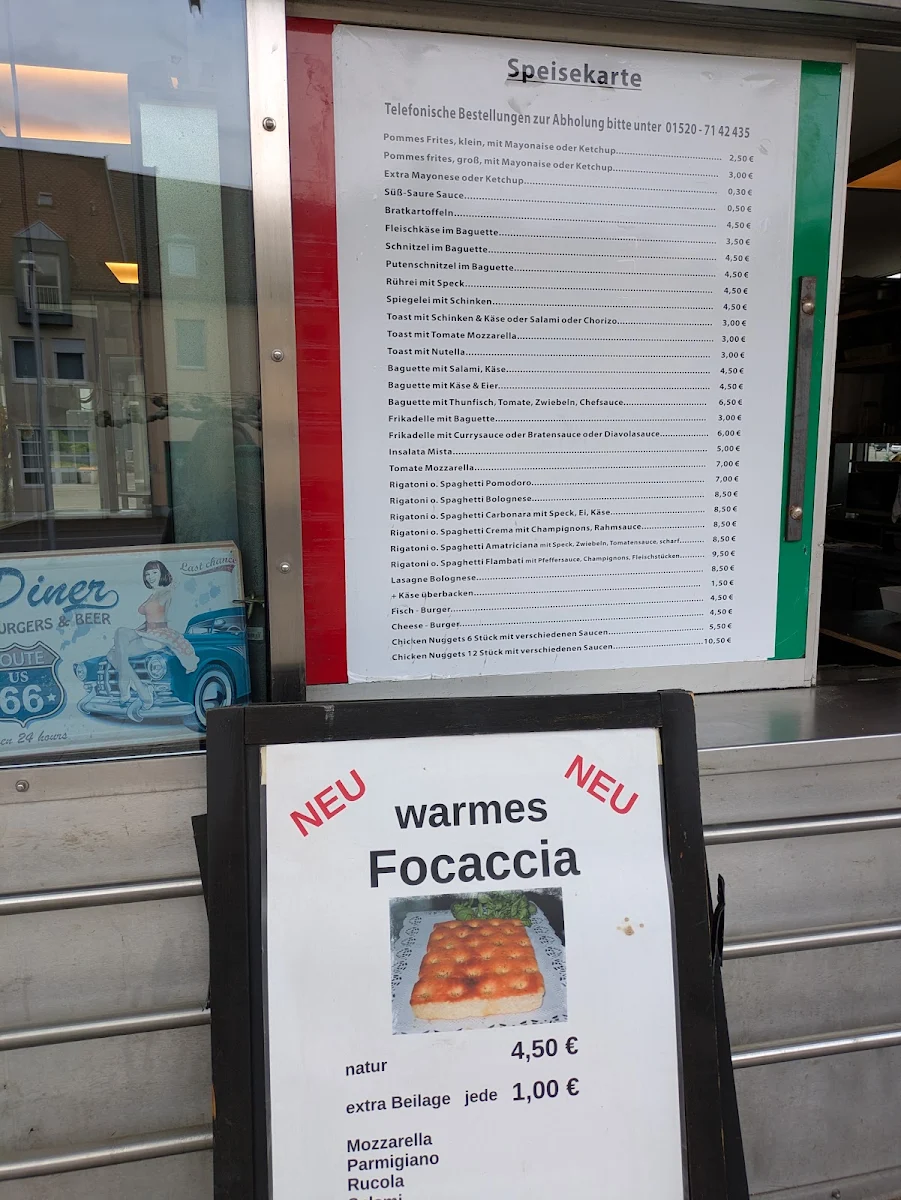 Speisekarte
Telefonische Bestellungen zur Abholung bitte unter 01520 - 71 42 435
Pommes Frites, klein, mit Mayonaise oder Ketchup 2,50 €
Pommes frites, groß, mit Mayonaise oder Ketchup 3,00 €
Extra Mayonese oder Ketchup 0,30 €
Süß-Saure Sauce 0,50 €
Bratkartoffeln 4,50 €
Fleischkäse im Baguette 3,50 €
Schnitzel im Baguette 4,50 €
Putenschnitzel im Baguette 4,50 €
Rührei mit Speck 4,50 €
Spiegelei mit Schinken 4,50 €
Toast mit Schinken & Käse oder Salami oder Chorizo 3,00 €
Toast mit Tomate Mozzarella 3,00 €
Toast mit Nutella 3,00 €
Baguette mit Salami, Käse 4,50 €
Baguette mit Käse & Eier 4,50 €
Baguette mit Thunfisch, Tomate, Zwiebeln, Chefsauce 6,50 €
Frikadelle mit Baguette 3,00 €
Frikadelle mit Currysauce oder Bratensauce oder Diavolasauce 6,00 €
Insalata Mista 5,00 €
Tomate Mozzarella 7,00 €
Rigatoni o. Spaghetti Pomodoro 7,00 €
Rigatoni o. Spaghetti Bolognese 8,50 €
Rigatoni o. Spaghetti Carbonara mit Speck, Ei, Käse 8,50 €
Rigatoni o. Spaghetti Crema mit Champignons, Rahmsauce 8,50 €
Rigatoni o. Spaghetti Amatriciana mit Speck, Zwiebeln, Tomatensauce, scharf 8,50 €
Rigatoni o. Spaghetti Flambati mit Pfeffersauce, Champignons, Fleischstücken 9,50 €
Lasagne Bolognese 8,50 €
+ Käse überbacken 1,50 €
Fisch - Burger 4,50 €
Cheese - Burger 4,50 €
Chicken Nuggets 6 Stück mit verschiedenen Saucen 5,50 €
Chicken Nuggets 12 Stück mit verschiedenen Saucen 10,50 €
Diner
Last chance
URGERS & BEER
ROUTE
US
66
en 24 hours
NEU
NEU
warmes
Focaccia
natur 4,50 €
extra Beilage jede 1,00 €
Mozzarella
Parmigiano
Rucola